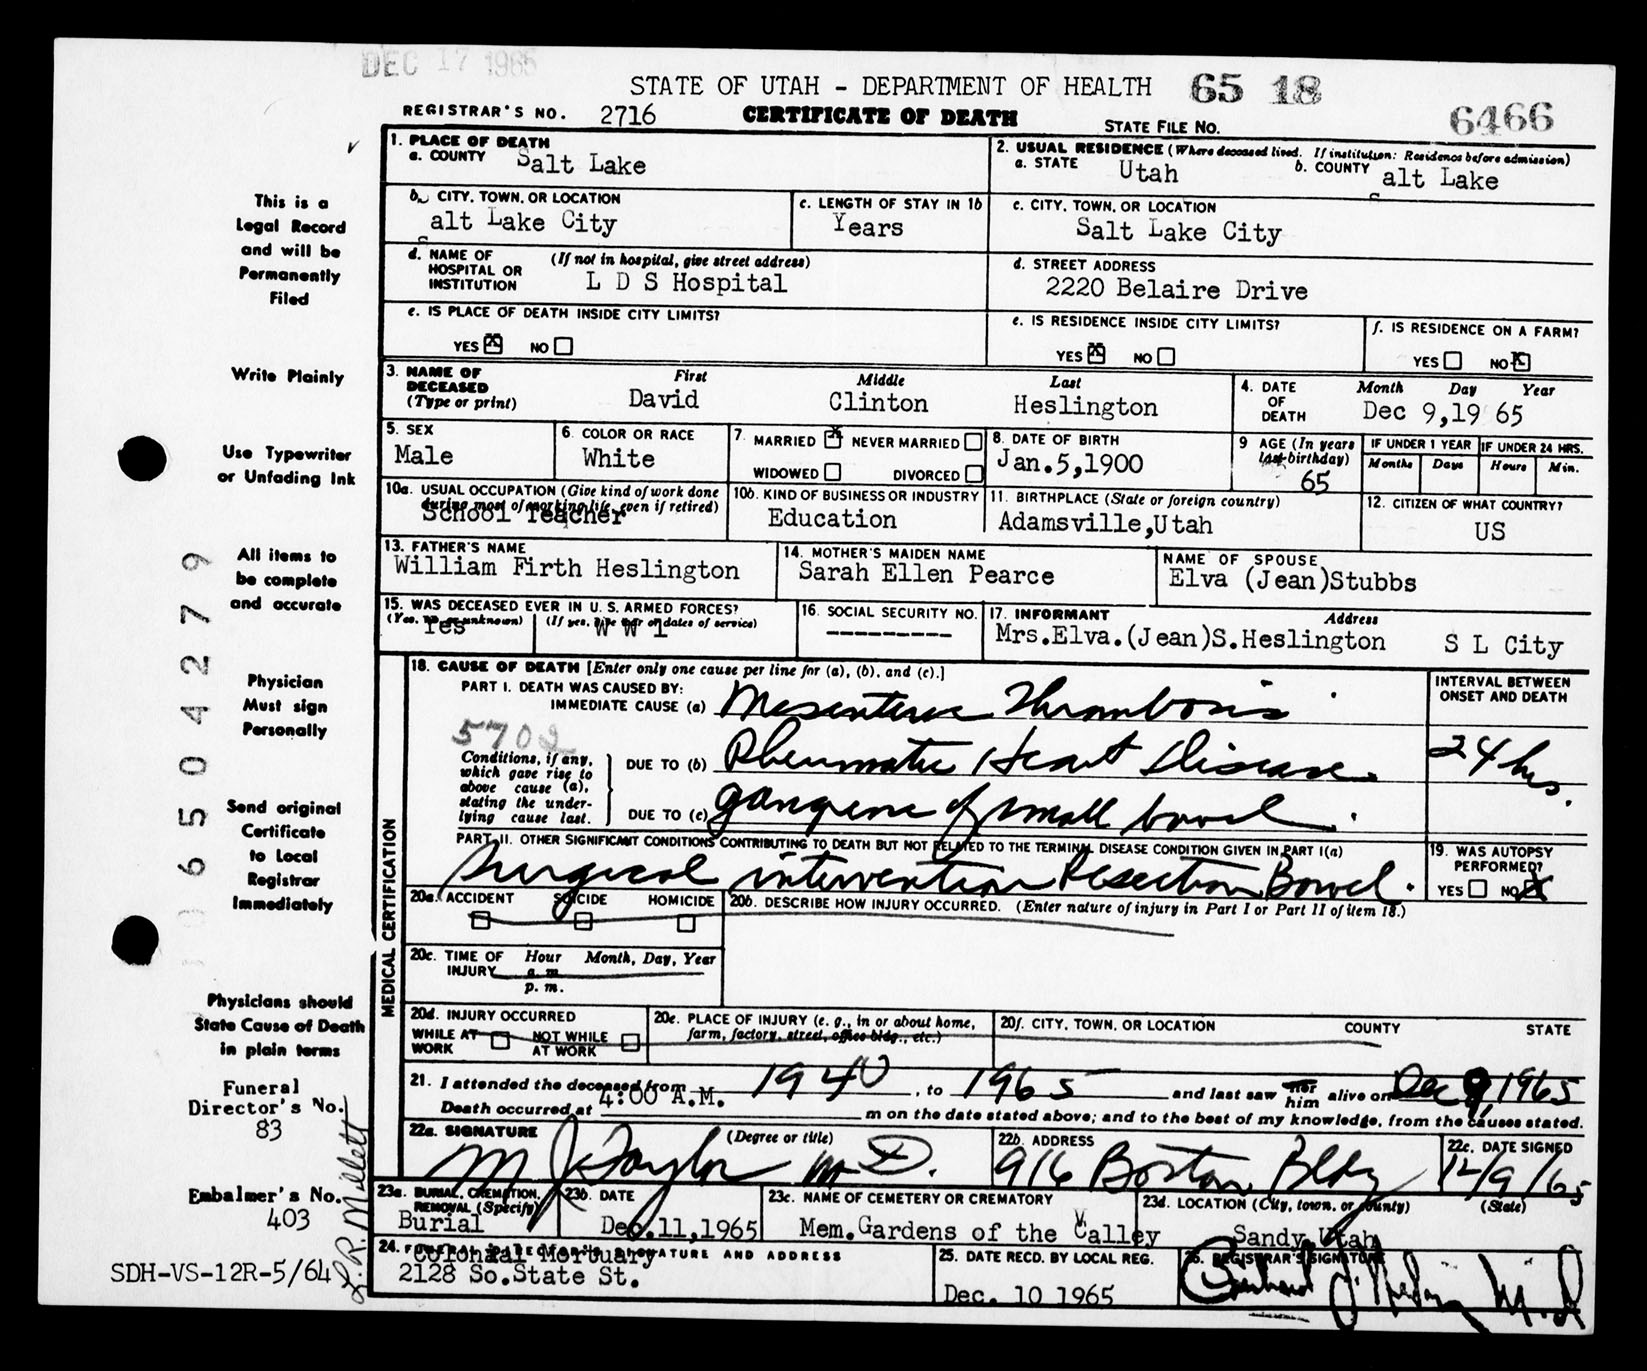 DEC 17 1965
STATE OF UTAH - DEPARTMENT OF HEALTH 65 18
REGISTRAR'S NO. 2716 CERTIFICATE OF DEATH STATE FILE NO. 6466
1. PLACE OF DEATH
a. COUNTY Salt Lake
2. USUAL RESIDENCE (Where deceased lived. If institution: Residence before admission)
a. STATE Utah b. COUNTY Salt Lake
b. CITY, TOWN, OR LOCATION
Salt Lake City
c. LENGTH OF STAY IN 1b
Years
c. CITY, TOWN, OR LOCATION
Salt Lake City
d. NAME OF HOSPITAL OR INSTITUTION (If not in hospital, give street address)
L D S Hospital
d. STREET ADDRESS
2220 Belaire Drive
e. IS PLACE OF DEATH INSIDE CITY LIMITS?
YES X NO
e. IS RESIDENCE INSIDE CITY LIMITS?
YES X NO
f. IS RESIDENCE ON A FARM?
YES NO X
3. NAME OF DECEASED (Type or print)
First Middle Last
David Clinton Heslington
4. DATE OF DEATH
Month Day Year
Dec 9,19 65
5. SEX
Male
6. COLOR OR RACE
White
7. MARRIED X NEVER MARRIED
WIDOWED DIVORCED
8. DATE OF BIRTH
Jan.5,1900
9 AGE (In years last birthday)
65
IF UNDER 1 YEAR
Months Days
IF UNDER 24 HRS.
Hours Min.
10a. USUAL OCCUPATION (Give kind of work done during most of working life, even if retired)
School Teacher
10b. KIND OF BUSINESS OR INDUSTRY
Education
11. BIRTHPLACE (State or foreign country)
Adamsville,Utah
12. CITIZEN OF WHAT COUNTRY?
US
13. FATHER'S NAME
William Firth Heslington
14. MOTHER'S MAIDEN NAME
Sarah Ellen Pearce
NAME OF SPOUSE
Elva (Jean)Stubbs
15. WAS DECEASED EVER IN U. S. ARMED FORCES?
(Yes, no, or unknown) (If yes, give war or dates of service)
Yes W W 1
16. SOCIAL SECURITY NO.
---------
17. INFORMANT Address
Mrs.Elva.(Jean)S.Heslington S L City
MEDICAL CERTIFICATION
18. CAUSE OF DEATH [Enter only one cause per line for (a), (b), and (c).]
PART I. DEATH WAS CAUSED BY:
IMMEDIATE CAUSE (a) Mesenteric Thrombosis
INTERVAL BETWEEN ONSET AND DEATH
5702
Conditions, if any, which gave rise to above cause (a), stating the underlying cause last.
DUE TO (b) Rheumatic Heart Disease.
24 hrs.
DUE TO (c) gangrene of small bowel.
PART II. OTHER SIGNIFICANT CONDITIONS CONTRIBUTING TO DEATH BUT NOT RELATED TO THE TERMINAL DISEASE CONDITION GIVEN IN PART I(a)
Surgical intervention Resection Bowel.
19. WAS AUTOPSY PERFORMED?
YES NO X
20a. ACCIDENT SUICIDE HOMICIDE
20b. DESCRIBE HOW INJURY OCCURRED. (Enter nature of injury in Part I or Part II of item 18.)
20c. TIME OF INJURY Hour Month, Day, Year
a. m.
p. m.
20d. INJURY OCCURRED
WHILE AT WORK NOT WHILE AT WORK
20e. PLACE OF INJURY (e. g., in or about home, farm, factory, street, office bldg., etc.)
20f. CITY, TOWN, OR LOCATION COUNTY STATE
21. I attended the deceased from 1940, to 1965 and last saw her him alive on Dec 9, 1965
Death occurred at 4:00 A.M. m on the date stated above; and to the best of my knowledge, from the causes stated.
22a. SIGNATURE (Degree or title)
M J Taylor M D.
22b. ADDRESS
916 Boston Bldg
22c. DATE SIGNED
12/9/65
23a. BURIAL, CREMATION, REMOVAL (Specify)
Burial
23b. DATE
Dec.11,1965
23c. NAME OF CEMETERY OR CREMATORY
Mem.Gardens of the Valley
23d. LOCATION (City, town, or county) (State)
Sandy Utah
24. FUNERAL DIRECTOR'S SIGNATURE AND ADDRESS
Colonial Mortuary
2128 So.State St.
25. DATE RECD. BY LOCAL REG.
Dec. 10 1965
26. REGISTRAR'S SIGNATURE
This is a
Legal Record
and will be
Permanently
Filed
Write Plainly
Use Typewriter
or Unfading Ink
All items to
be complete
and accurate
Physician
Must sign
Personally
Send original
Certificate
to Local
Registrar
Immediately
Physicians should
State Cause of Death
in plain terms
Funeral
Director's No.
83
Embalmer's No.
403
L.R. Millett
SDH-VS-12R-5/64
0650 4279